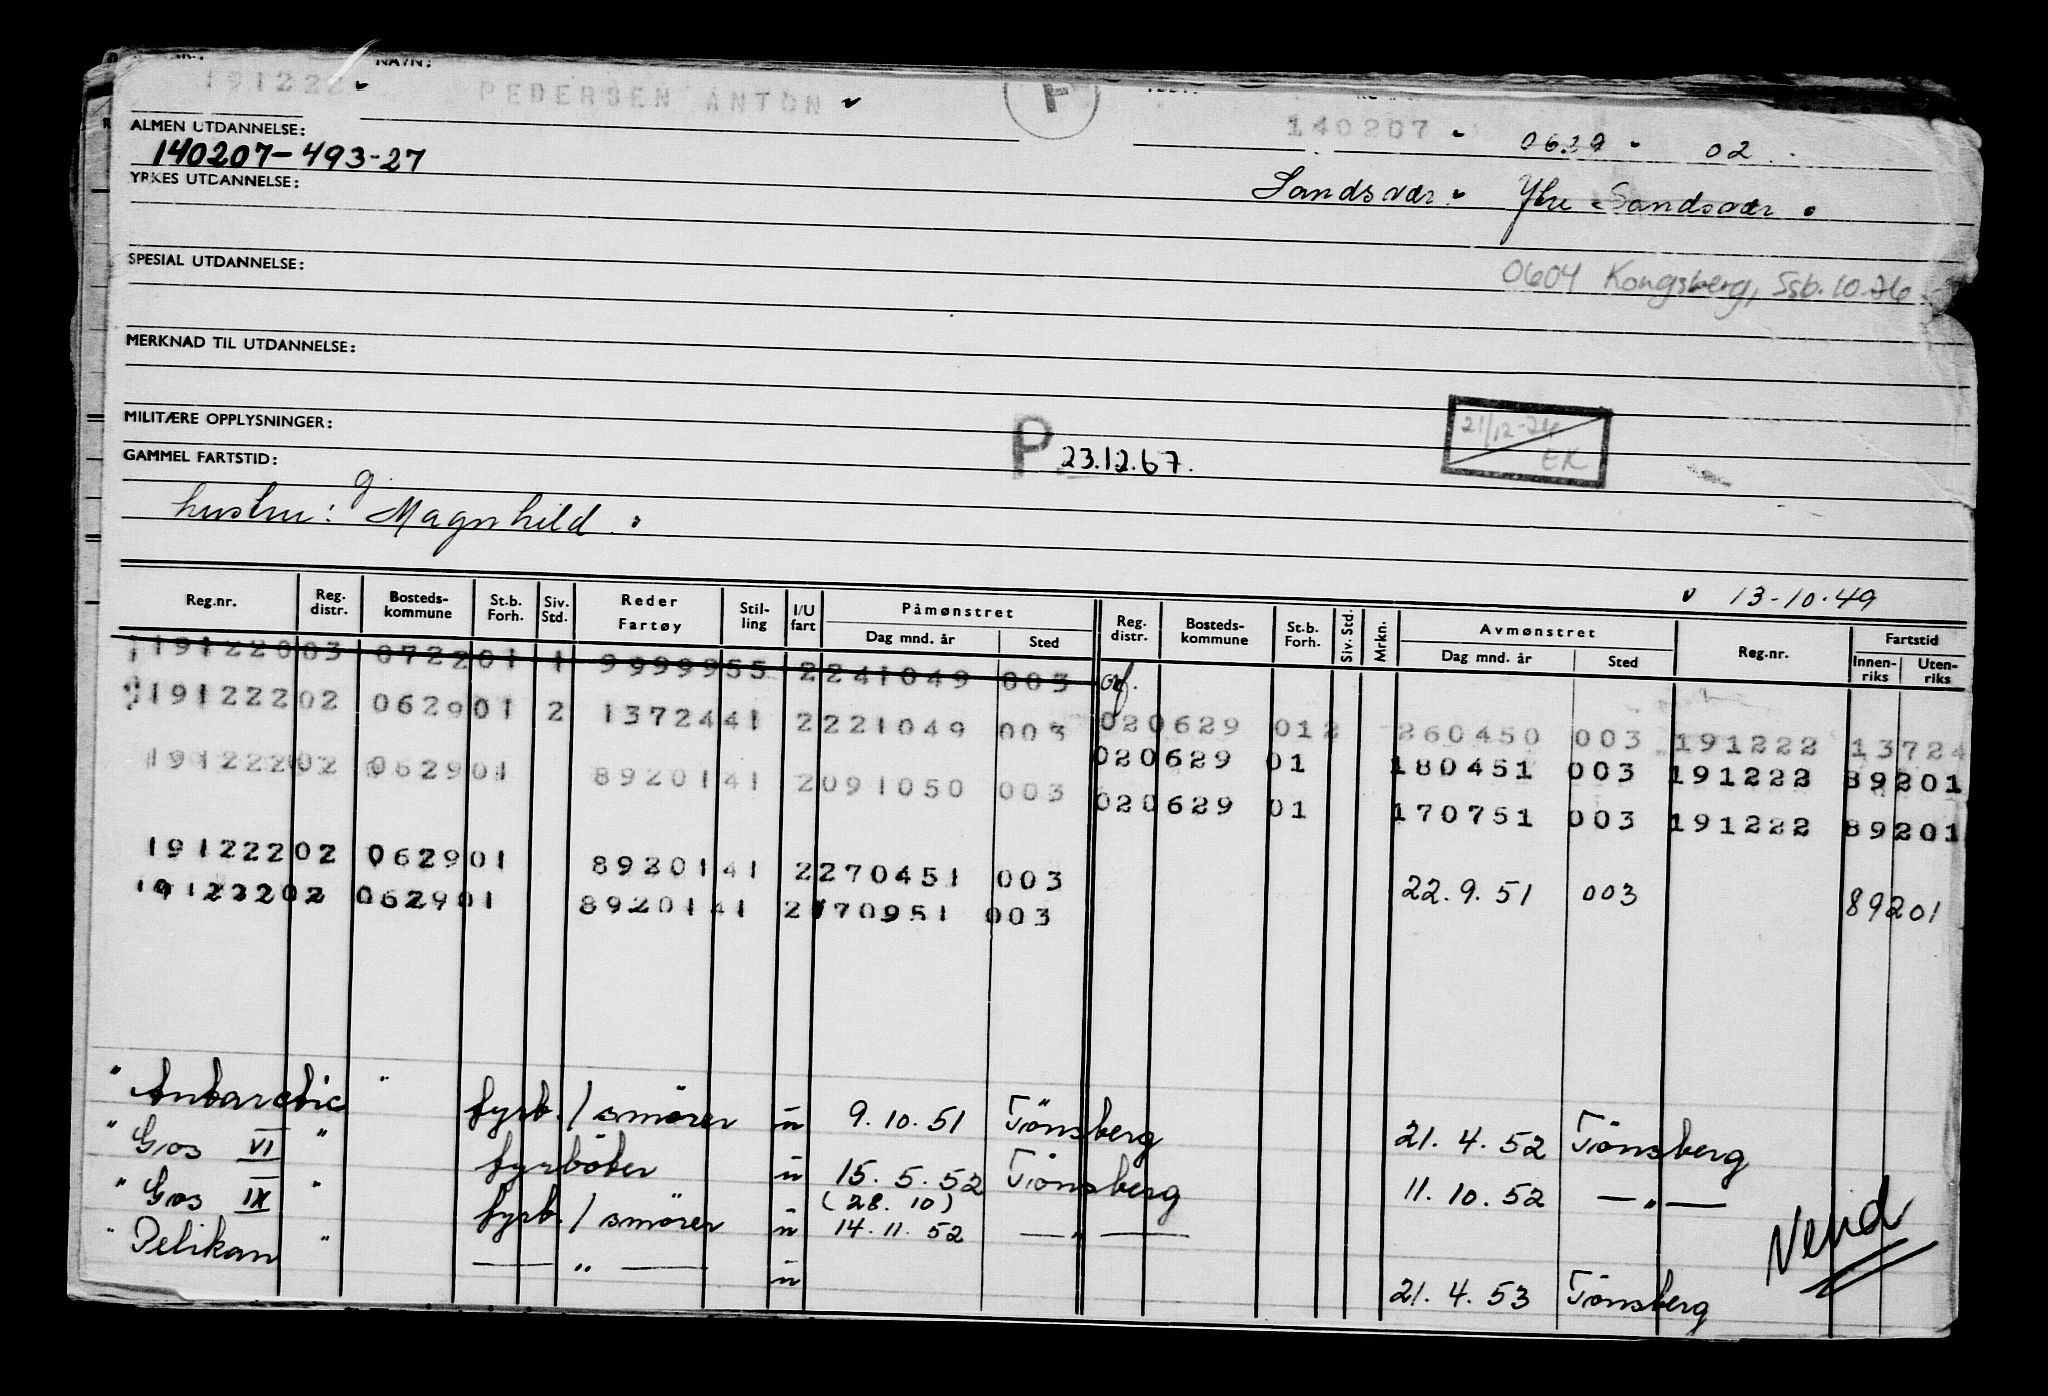 NAVN:
191222 PEDERSEN ANTON F 140207 0629 02
ALMEN UTDANNELSE:
140207-493-27
YRKES UTDANNELSE:
Sandsvær Ytre Sandsvær
SPESIAL UTDANNELSE:
0604 Kongsberg, Ssb. 10.76
MERKNAD TIL UTDANNELSE:
MILITÆRE OPPLYSNINGER:
21/12-74 EK
GAMMEL FARTSTID:
P 23.12.67.
hustru: g Magnhild
13-10-49
Reg.nr. Reg. distr. Bosteds-kommune St.b. Forh. Siv. Std. Reder Fartøy Stil-ling I/U fart Påmønstret Dag mnd. år Sted Reg. distr. Bosteds-kommune St.b. Forh. Siv. Std. Mrkn. Avmønstret Dag mnd. år Sted Reg.nr. Fartstid Innen-riks Uten-riks
19122003 072201 1 9999955 2241049 003 orf.
19122202 062901 2 1372441 2221049 003 020629 012 260450 003 191222 13724
19122202 062901 8920141 2091050 003 020629 01 180451 003 191222 89201
020629 01 170751 003 191222 89201
19122202 062901 8920141 2270451 003
19122202 062901 8920141 2170951 003 22.9.51 003 89201
" Antarctic " fyrb. / smører u 9.10.51 Tönsberg 21.4.52 Tönsberg
" Gos VI " fyrböter u 15.5.52 Tönsberg 11.10.52 — " —
" Gos IX " fyrb. / smører u (28.10) 14.11.52 — " —
" Pelikan " — " — u 21.4.53 Tönsberg
Vend